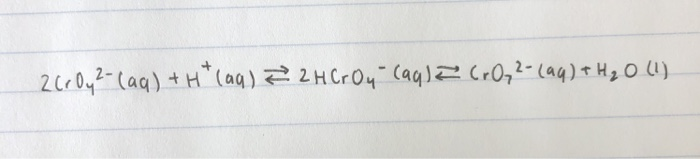 2CrO₄²⁻(aq) + H⁺(aq) ⇄ 2HCrO₄⁻(aq) ⇄ CrO₇²⁻(aq) + H₂O(l)